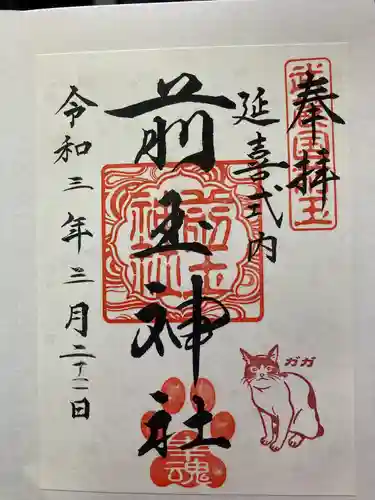 奉拝
延喜式内
前玉神社
令和三年三月二十一日
ガガ
幸魂
前玉神社